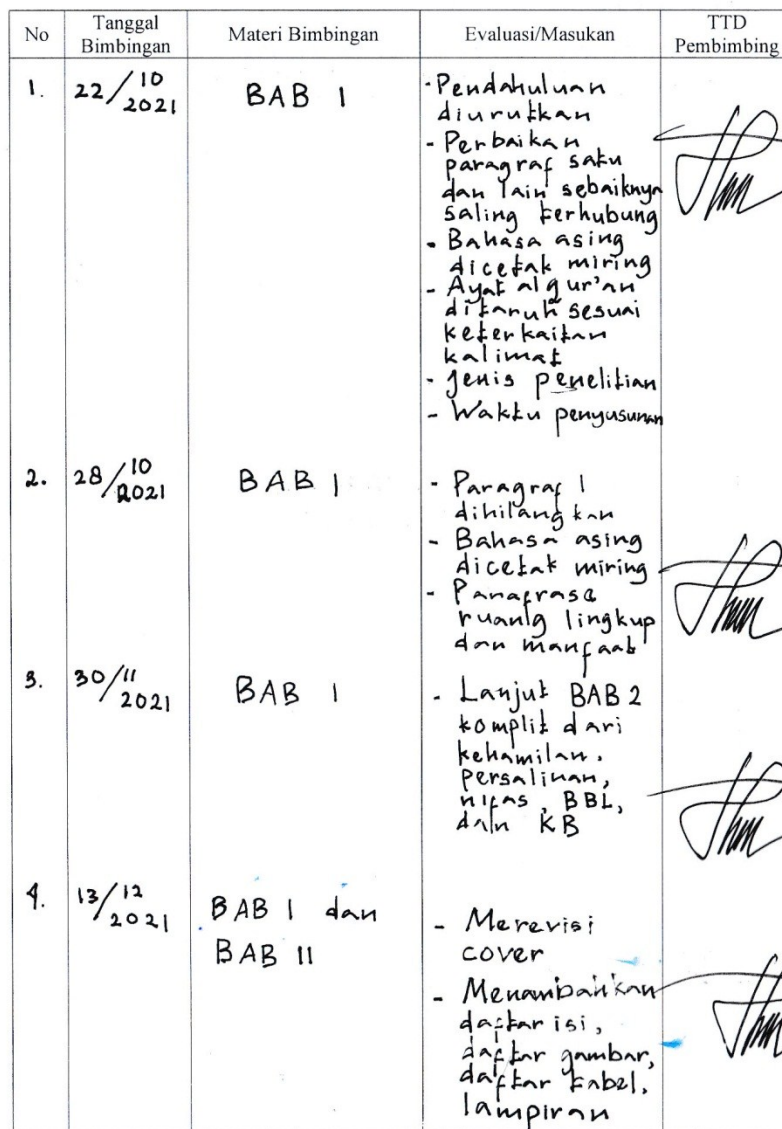 No Tanggal Bimbingan Materi Bimbingan Evaluasi/Masukan TTD Pembimbing
1. 22/10 2021 BAB 1 - Pendahuluan
diurutkan
- Perbaikan
paragraf satu
dan lain sebaiknya
saling terhubung
- Bahasa asing
dicetak miring
- Ayat alqur'an
ditaruh sesuai
keterkaitan
kalimat
- Jenis penelitian
- Waktu penyusunan
2. 28/10 2021 BAB 1 - Paragraf 1
dihilangkan
- Bahasa asing
dicetak miring
- Parafrase
ruang lingkup
dan manfaat
3. 30/11 2021 BAB 1 - Lanjut BAB 2
komplit dari
kehamilan,
persalinan,
nifas, BBL,
dan KB
4. 13/12 2021 BAB 1 dan
BAB II
- Merevisi
cover
- Menambahkan
daftar isi,
daftar gambar,
daftar tabel,
lampiran